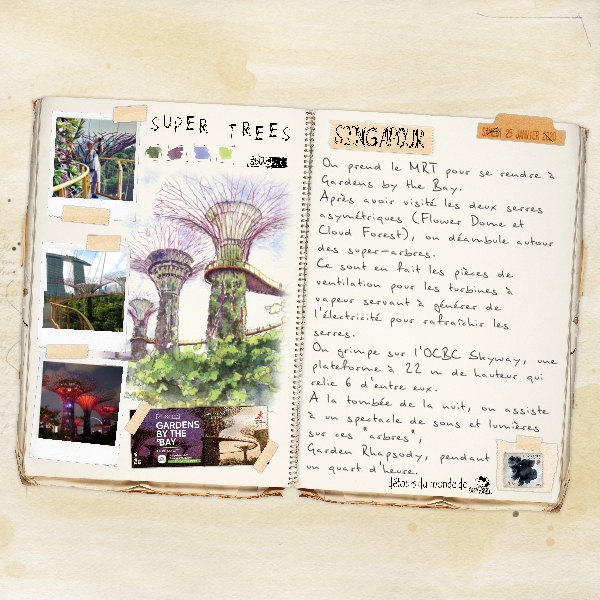 SUPER TREES
GARDENS
BY THE
BAY
SINGAPOUR
SAMEDI 25 JANVIER 2020
On prend le MRT pour se rendre à
Gardens by the Bay.
Après avoir visité les deux serres
asymétriques (Flower Dome et
Cloud Forest), on déambule autour
des super-arbres.
Ce sont en fait les pièces de
ventilation pour les turbines à
vapeur servant à générer de
l'électricité pour rafraîchir les
serres.
On grimpe sur l'OCBC Skyway, une
plateforme à 22 m de hauteur qui
relie 6 d'entre eux.
A la tombée de la nuit, on assiste
à un spectacle de sons et lumières
sur ces "arbres",
Garden Rhapsody, pendant
un quart d'heure.
détours du monde de